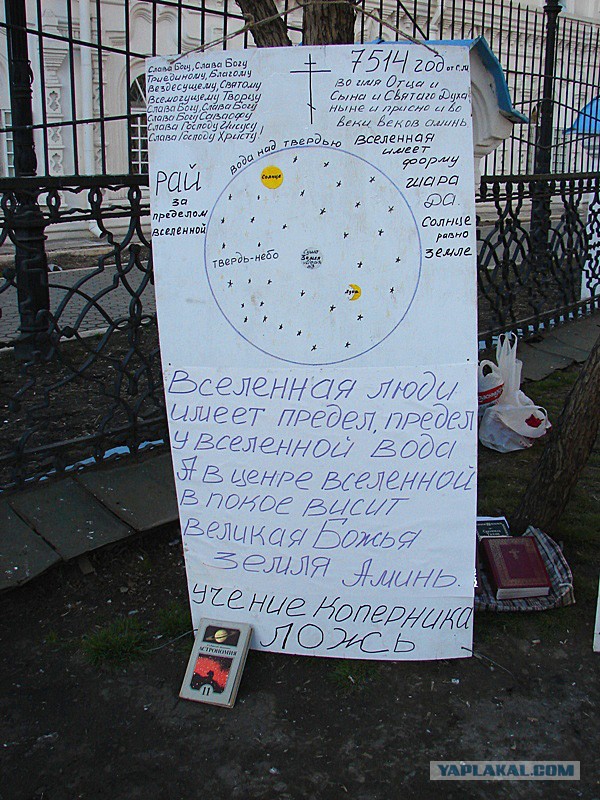 Слава Богу, Слава Богу
Триединому, Благому
Вездесущему, Святому
Всемогущему Творцу
Слава Богу, Слава Богу
Слава Богу Саваофу
Слава Господу Иисусу
Слава Господу Христу!
7514 год от С.М.
Во имя Отца и
Сына и Святаго Духа
ныне и присно и во
веки веков аминь
Вода над твердью
Вселенная
имеет
форму
шара
да.
Солнце
равно
Земле
Рай
за
пределом
вселенной
Солнце
твердь-небо
Земля
Луна
Вселенная люди
имеет предел, предел
у вселенной вода
А в ценре вселенной
в покое висит
великая Божья
Земля Аминь.
Учение Коперника
ЛОЖЬ
АСТРОНОМИЯ
11
YAPLAKAL.COM